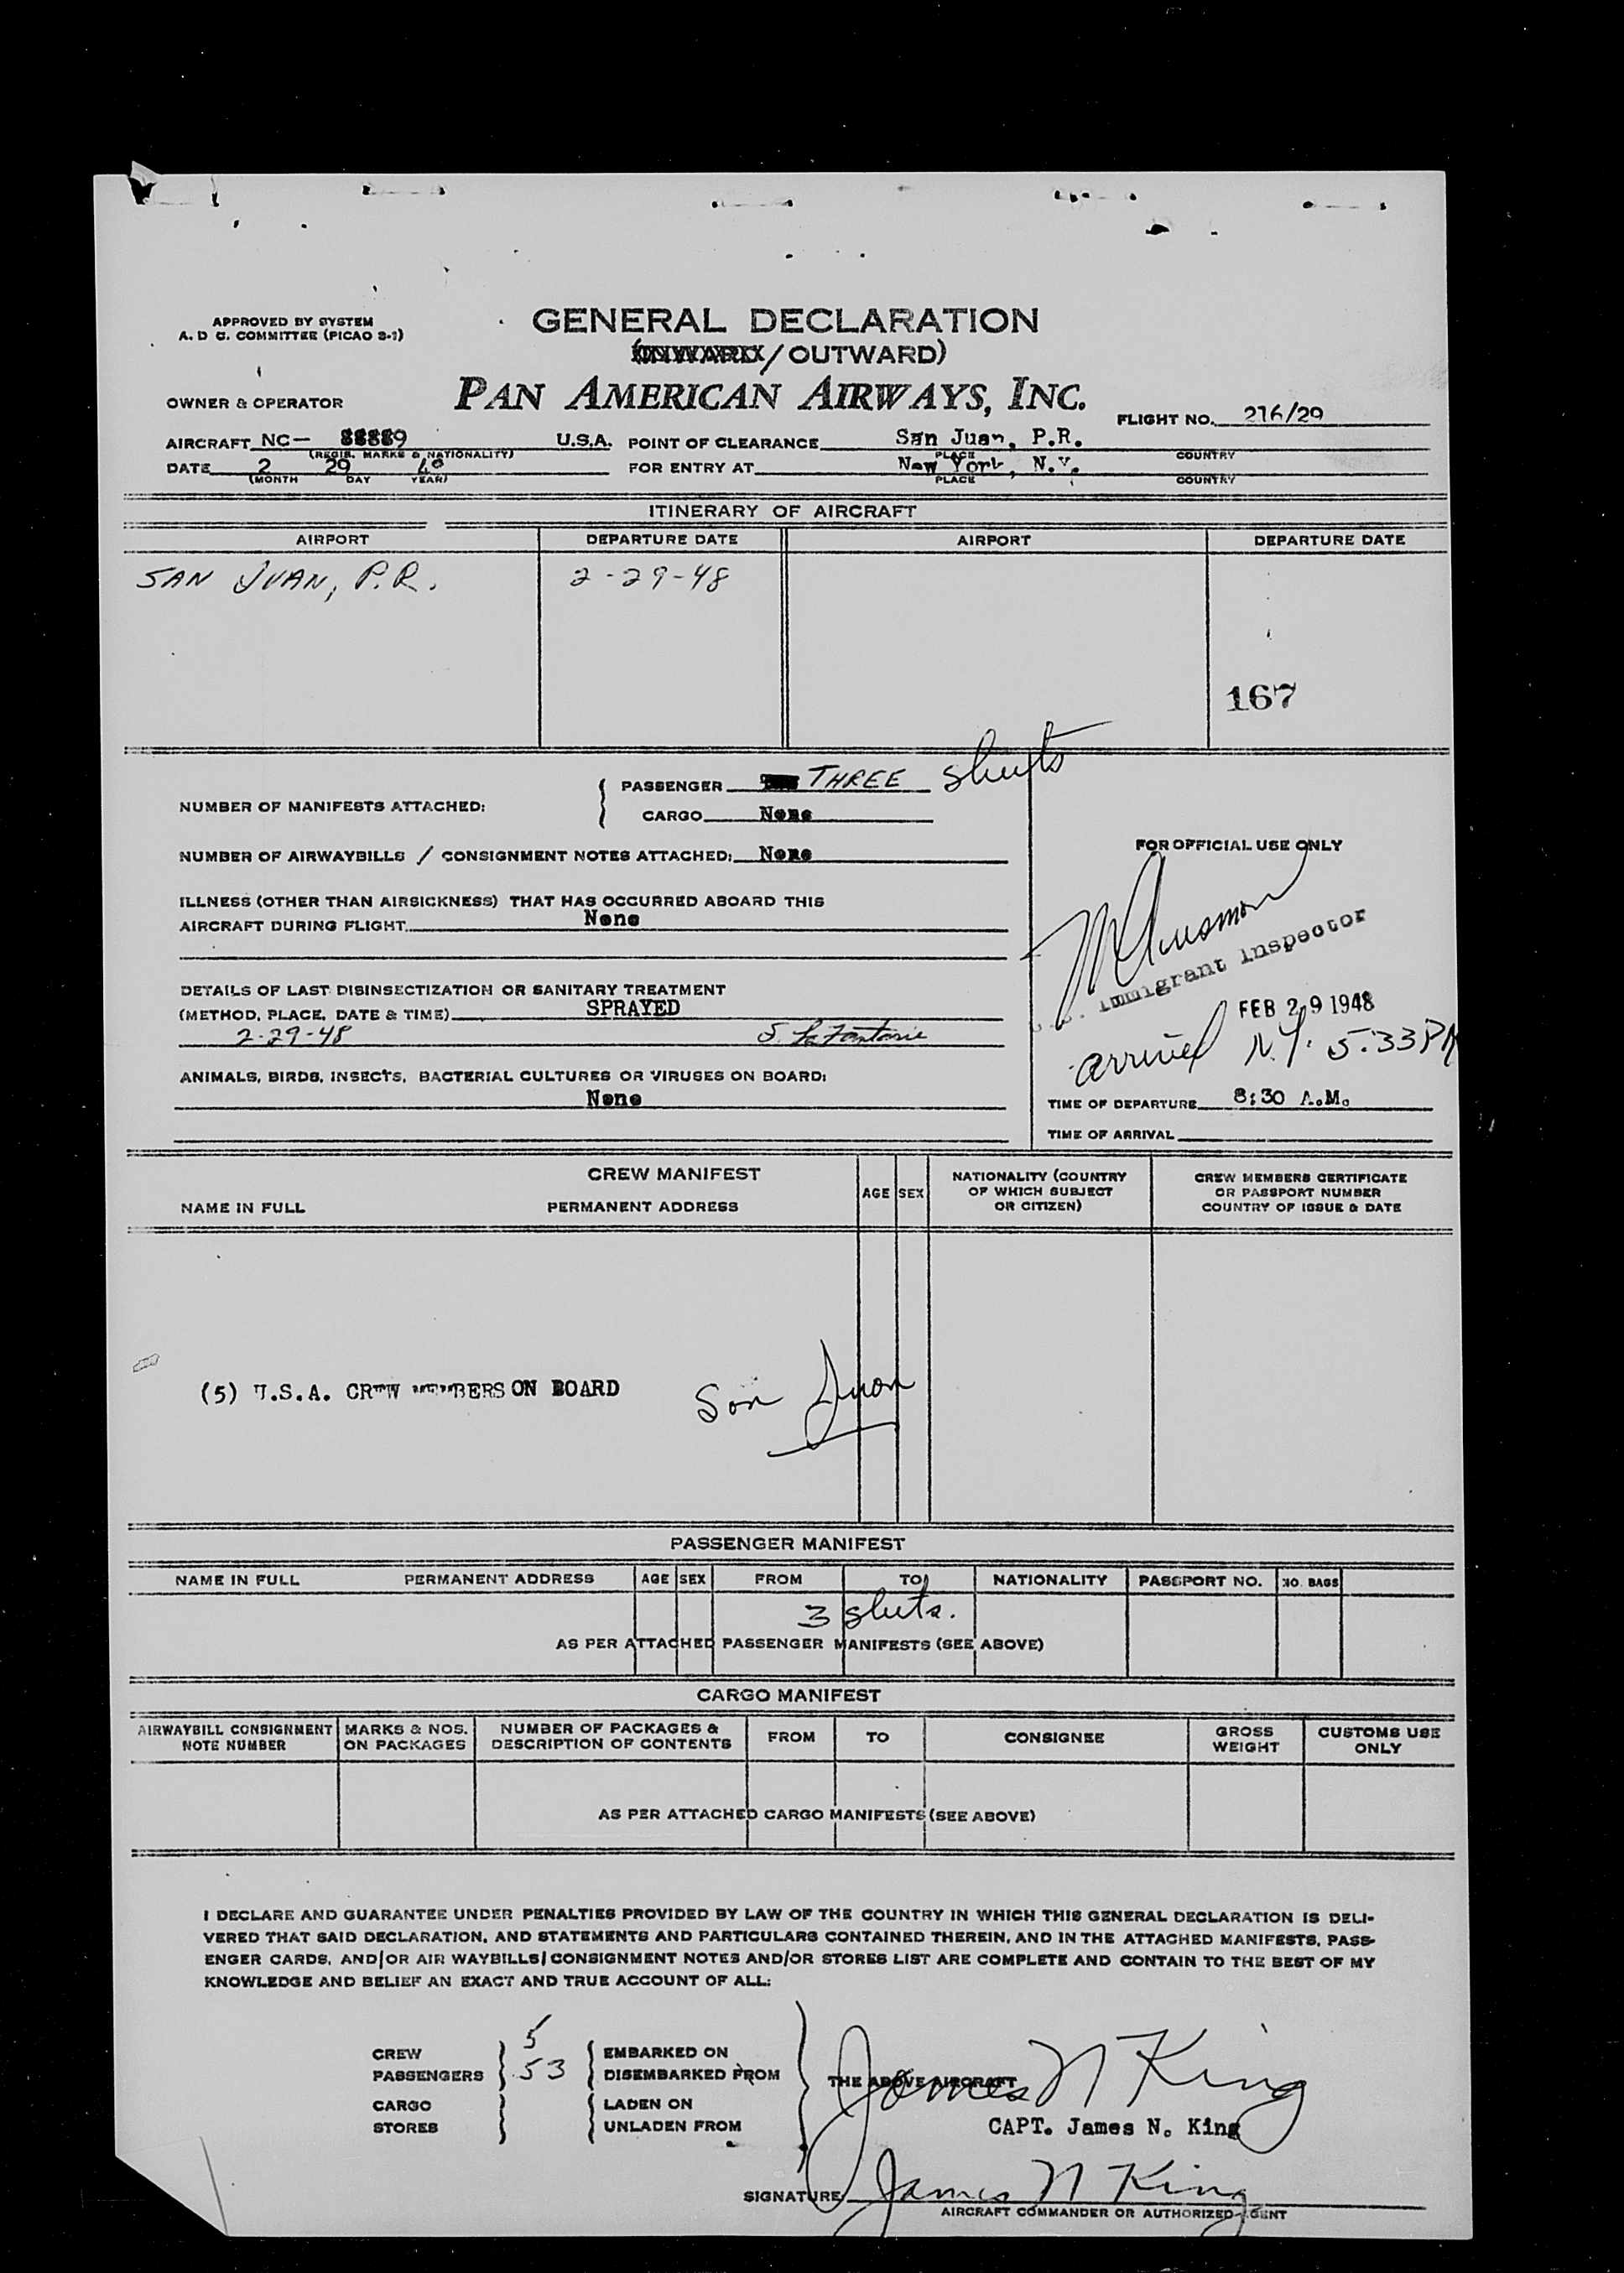 APPROVED BY SYSTEM
A. D. C. COMMITTEE (PICAO 3-1)
GENERAL DECLARATION
(INWARD/OUTWARD)
OWNER & OPERATOR
PAN AMERICAN AIRWAYS, INC.
FLIGHT NO. 216/29
AIRCRAFT NC- 88889 U.S.A. POINT OF CLEARANCE San Juan, P.R.
(REGIS. MARKS & NATIONALITY) PLACE COUNTRY
DATE 2 29 48 FOR ENTRY AT New York, N.Y.
(MONTH DAY YEAR) PLACE COUNTRY
ITINERARY OF AIRCRAFT
AIRPORT DEPARTURE DATE AIRPORT DEPARTURE DATE
SAN JUAN, P.R. 2-29-48
167
NUMBER OF MANIFESTS ATTACHED: PASSENGER THREE sheets
CARGO None
NUMBER OF AIRWAYBILLS / CONSIGNMENT NOTES ATTACHED: None
FOR OFFICIAL USE ONLY
ILLNESS (OTHER THAN AIRSICKNESS) THAT HAS OCCURRED ABOARD THIS
AIRCRAFT DURING FLIGHT None
Immigrant Inspector
DETAILS OF LAST DISINSECTIZATION OR SANITARY TREATMENT
(METHOD, PLACE, DATE & TIME) SPRAYED
2-29-48 S. LaFontaine
FEB 29 1948
arrived N.Y. 5:33 PM
ANIMALS, BIRDS, INSECTS, BACTERIAL CULTURES OR VIRUSES ON BOARD:
None
TIME OF DEPARTURE 8:30 A.M.
TIME OF ARRIVAL
CREW MANIFEST
NAME IN FULL PERMANENT ADDRESS
AGE SEX
NATIONALITY (COUNTRY
OF WHICH SUBJECT
OR CITIZEN)
CREW MEMBERS CERTIFICATE
OR PASSPORT NUMBER
COUNTRY OF ISSUE & DATE
(5) U.S.A. CREW MEMBERS ON BOARD San Juan
PASSENGER MANIFEST
NAME IN FULL PERMANENT ADDRESS AGE SEX FROM TO NATIONALITY PASSPORT NO. NO. BAGS
3 shets.
AS PER ATTACHED PASSENGER MANIFESTS (SEE ABOVE)
CARGO MANIFEST
AIRWAYBILL CONSIGNMENT
NOTE NUMBER
MARKS & NOS.
ON PACKAGES
NUMBER OF PACKAGES &
DESCRIPTION OF CONTENTS
FROM TO CONSIGNEE
GROSS
WEIGHT
CUSTOMS USE
ONLY
AS PER ATTACHED CARGO MANIFESTS (SEE ABOVE)
I DECLARE AND GUARANTEE UNDER PENALTIES PROVIDED BY LAW OF THE COUNTRY IN WHICH THIS GENERAL DECLARATION IS DELI-
VERED THAT SAID DECLARATION, AND STATEMENTS AND PARTICULARS CONTAINED THEREIN, AND IN THE ATTACHED MANIFESTS, PASS-
ENGER CARDS, AND/OR AIR WAYBILLS/CONSIGNMENT NOTES AND/OR STORES LIST ARE COMPLETE AND CONTAIN TO THE BEST OF MY
KNOWLEDGE AND BELIEF AN EXACT AND TRUE ACCOUNT OF ALL:
CREW 5 EMBARKED ON
PASSENGERS 53 DISEMBARKED FROM
THE ABOVE AIRCRAFT
James N King
CARGO LADEN ON
STORES UNLADEN FROM
CAPT. James N. King
SIGNATURE James N King
AIRCRAFT COMMANDER OR AUTHORIZED AGENT